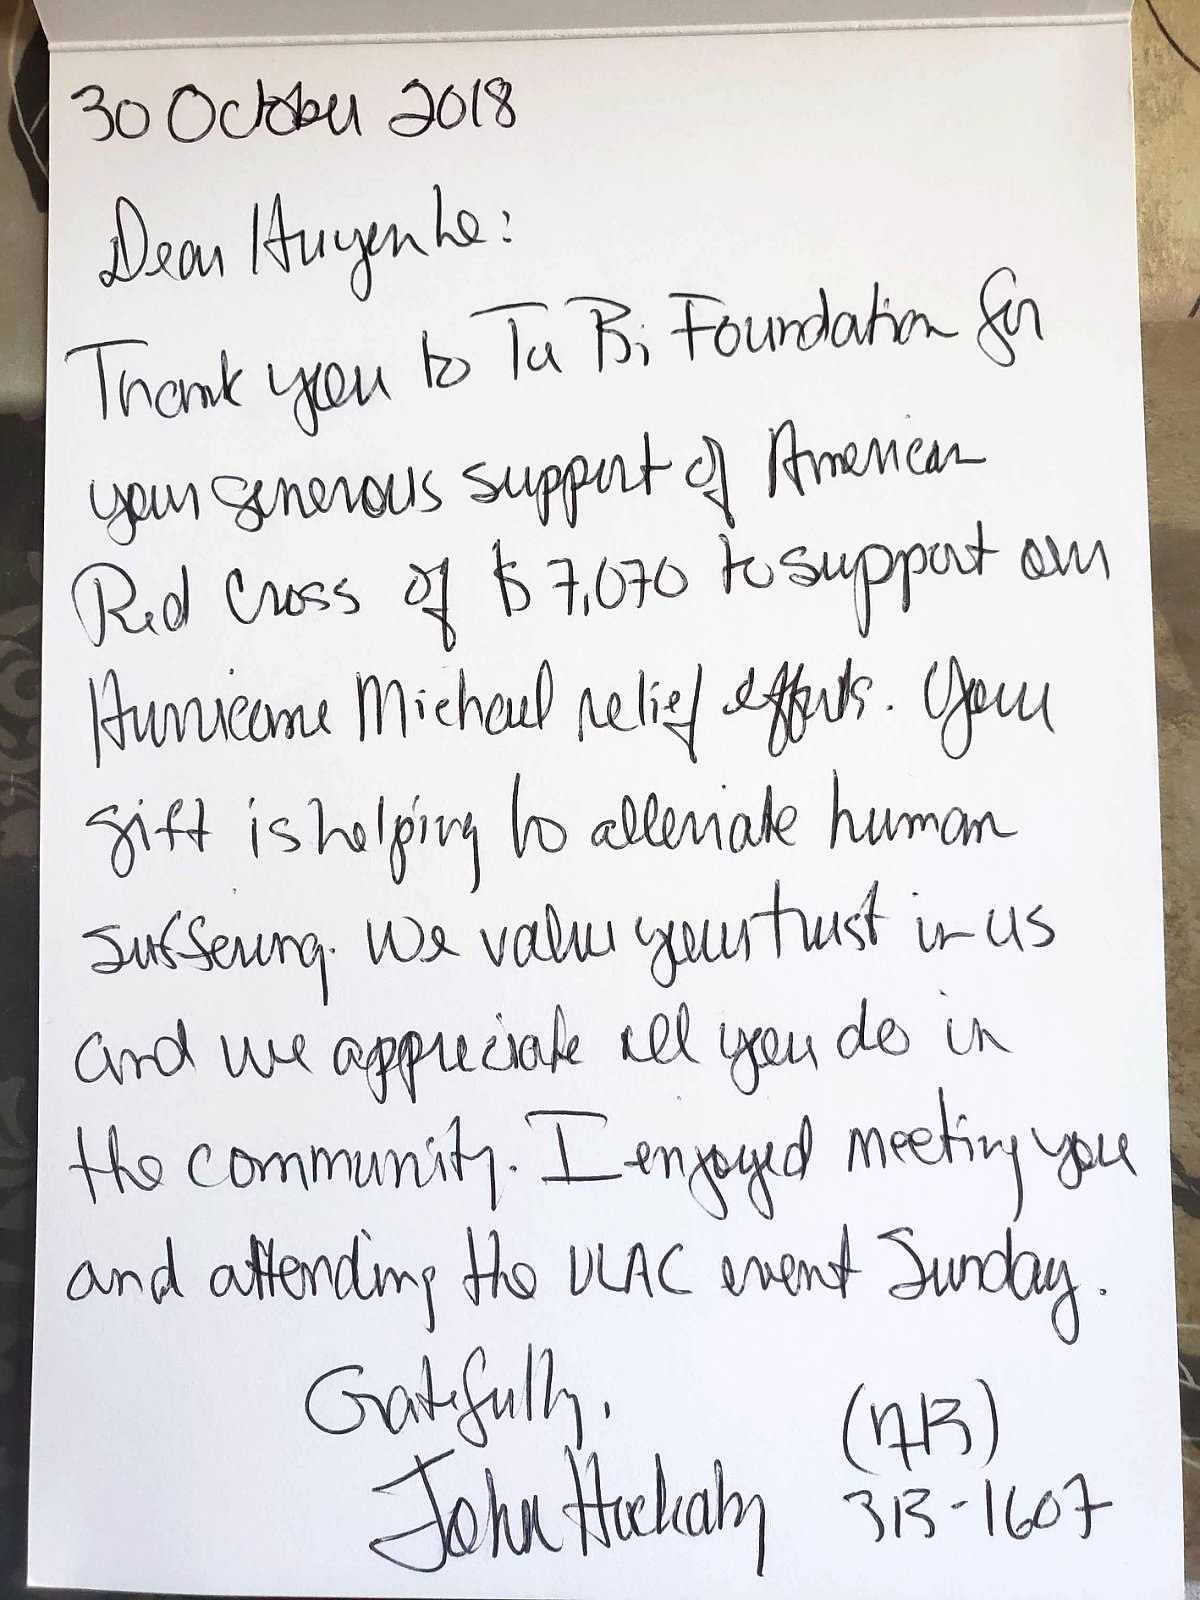 30 October 2018
Dear Huyen Le:
Thank you to Tu Bi Foundation for
your generous support of American
Red Cross of $7,070 to support our
Hurricane Michael relief efforts. Your
gift is helping to alleviate human
suffering. We value your trust in us
and we appreciate all you do in
the community. I enjoyed meeting you
and attending the VLAC event Sunday.
Gratefully,
John
313-1607